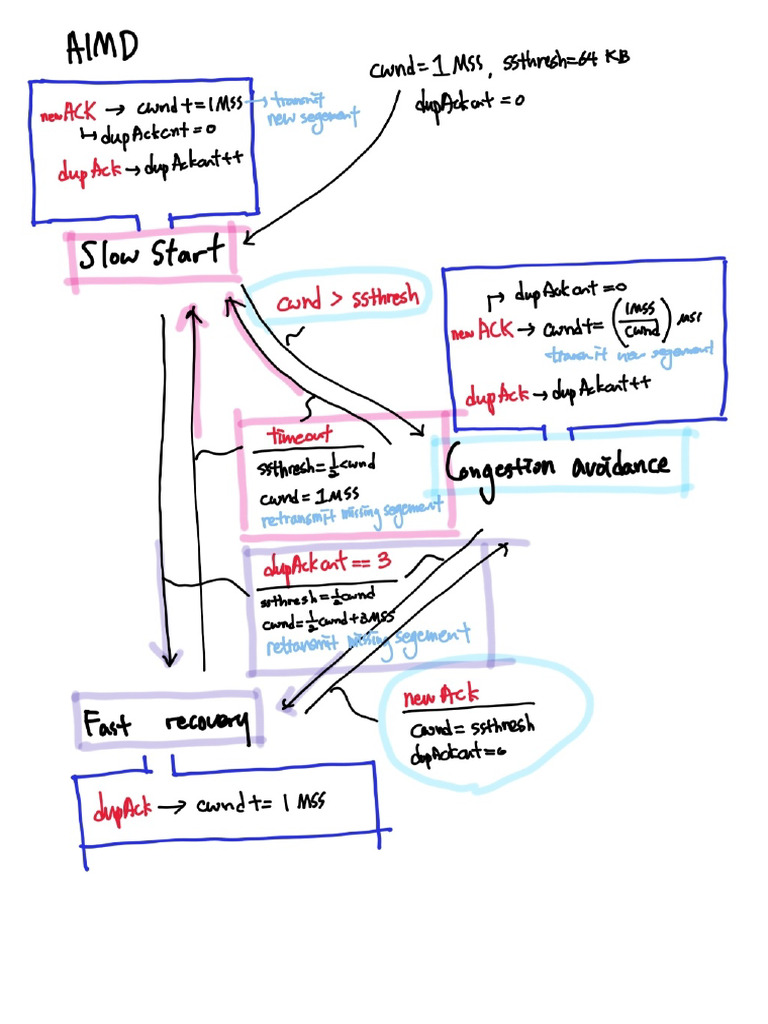 AIMD
cwnd=1MSS, ssthresh=64 KB
dupAckcnt=0
newACK → cwnd+=1MSS → transmit
new segement
↳ dupAckcnt=0
dupAck → dupAckcnt++
Slow Start
cwnd > ssthresh
↱ dupAckcnt=0
newACK → cwnd+= (1MSS/cwnd) MSS
transmit new segement
dupAck → dupAckcnt++
timeout
ssthresh=½cwnd
cwnd=1MSS
retransmit missing segement
Congestion avoidance
dupAckcnt == 3
ssthresh=½cwnd
cwnd=½cwnd+3MSS
retransmit missing segement
newAck
cwnd=ssthresh
dupAckcnt=0
Fast recovery
dupAck → cwnd+= 1 MSS